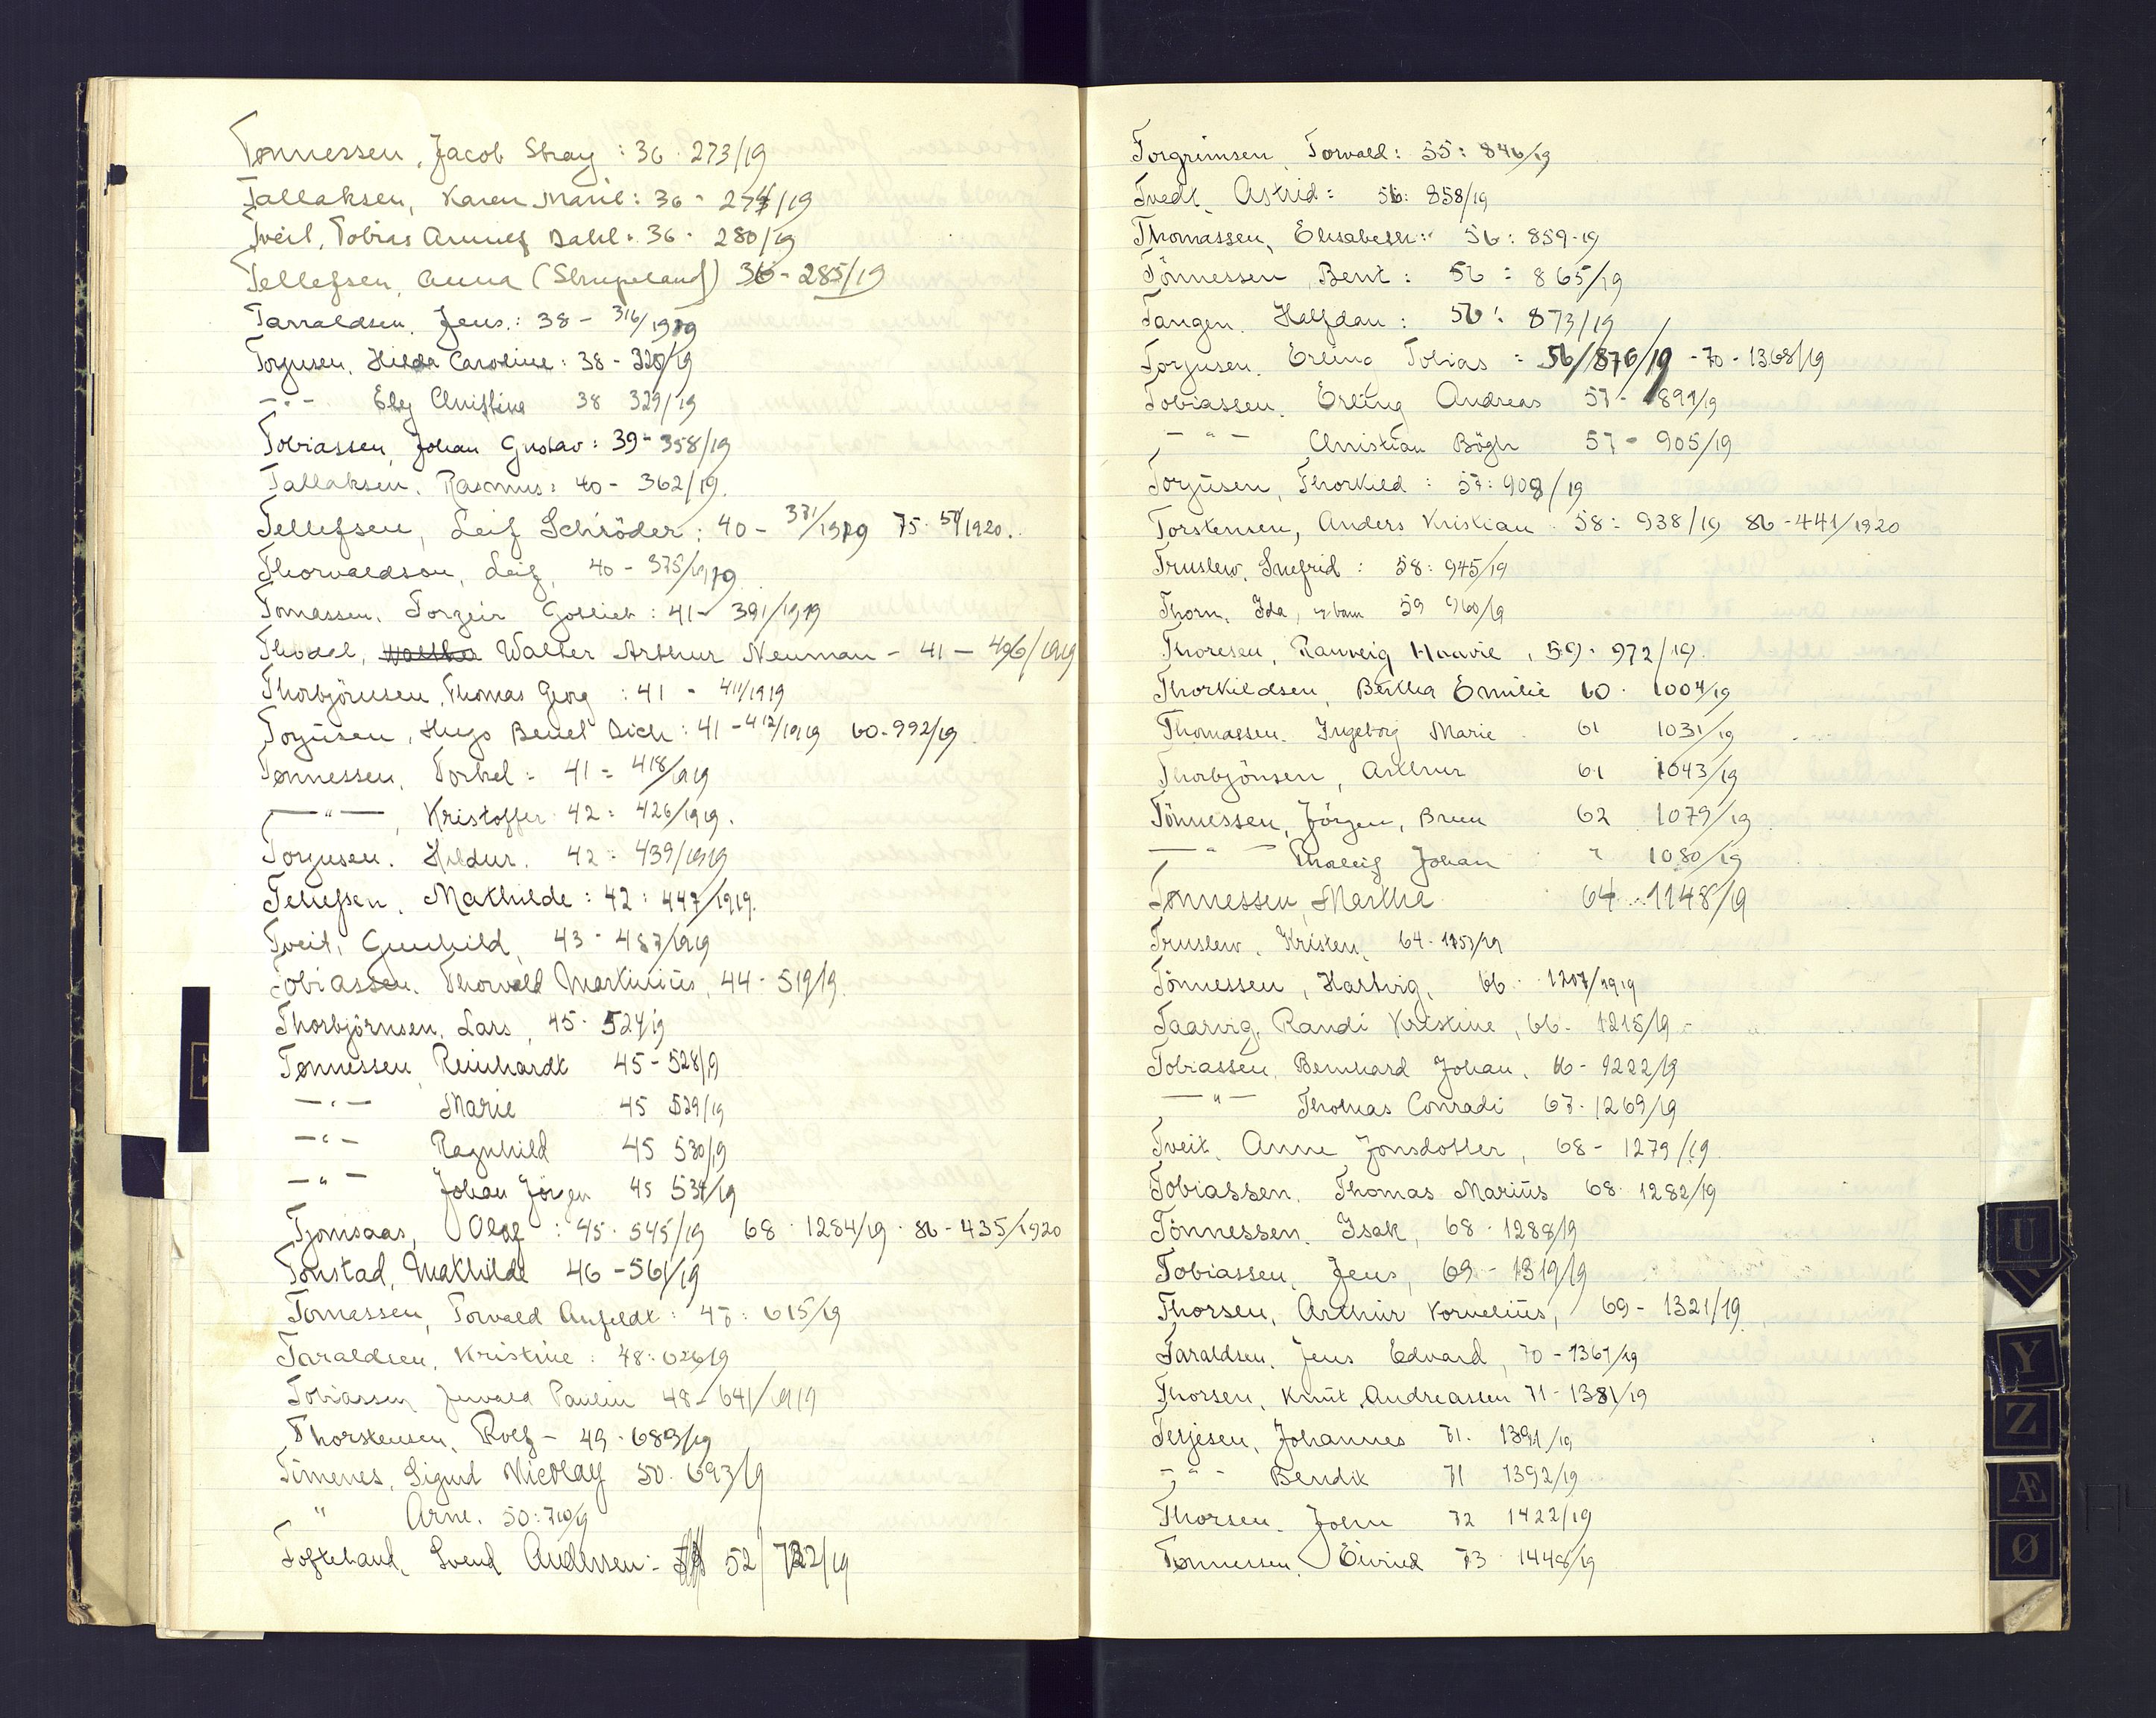 Tønnessen, Jacob Stray : 36 · 273/19
Tallaksen, Karen Marie : 36 - 274/19
Tveit, Tobias Dahl · 36 · 280/19
Tellefsen, Anna (Strupeland) 36 - 285/19
Tarraldsen, Jens. : 38 - 316/1919
Torjusen, Hilda Caroline : 38 - 328/19
- " - Christine 38 329/19
Tobiassen, Johan Gustav : 39 - 358/19
Tallaksen, Rasmus : 40 - 362/19.
Tellefsen, Leif Schröder : 40 - 371/1919 75 · 1920.
Thorvaldson, Leif, 40 - 375/1919
Tomassen, Torgeir Gotlieb : 41 - 391/1919
Walter Arthur Neuman - 41 - 406/1919
Thorbjörnsen, Thomas Georg : 41 - 411/1919
Torjusen, Hugo Bendt Dick : 41 - 412/1919 60 - 992/19
Tønnessen, Torkel : 41 = 418/1919
— " —, Kristoffer 42 : 426/1919.
Torjusen. Hildur. 42 : 439/1919
Tellefsen. Mathilde : 42 : 447/1919.
Tveit, Gunhild, 43 - 487/1919
Tobiassen. Thorvald Martinius, 44 - 519/19.
Thorbjörnsen, Lars, 45 · 524/19
Tønnessen, Reinhardt 45 - 528/19
- " - Marie 45 529/19
- " - Ragnhild 45 530/19
- " - Johan Jörgen 45 534/19
Tjomsaas, Olaf : 45 · 545/19 68 · 1284/19 · 86 - 435/1920
Tonstad, Mathilde 46 - 561/19
Tomassen, Torvald Anfeldt : 47 : 615/19
Taraldsen, Kristine : 48 : 626/19
Tobiassen Paulin 48 - 641/1919
Thorstensen, Rolf - 49 · 689/19
Timenes, Sigurd Nicolay 50 · 693/19
" Arne. 50 : 710/19
Tofteland, Svend Andersen : 52/722/19
Torgrimsen, Torvald : 55 : 846/19
Tvedt, Astrid : 56 : 858/19
Thomassen, Elisabeth : 56 : 859 - 19
Tönnessen, Bent : 56 : 865/19
Tangen. Halfdan : 56 : 873/19
Torjusen. Erling Tobias : 56/876/19 - 70 - 1368/19
Tobiassen. Erling Andreas 57 - 891/19
- " - Christian Bögh 57 - 905/19
Torjusen, Thorkild : 57 : 908/19
Torstensen, Anders Kristian 58 : 938/19 86 - 441/1920
Truslew, Snefrid : 58 : 945/19
Thorn, Ida, 59 960/19
Thoresen, Ranveig Haavie, 59 · 972/19
Thorkildsen, Bertha Emilie 60 · 1004/19
Thomassen. Ingeborg Marie 61 1031/19
Thorbjönsen, Arthur 61 1043/19
Tönnessen, Jörgen, Bruu 62 1079/19
- " - Tholleif Johan " 1080/19
Tønnessen, Martha 64 1148/19
Truslew, Kristen, 64 - 1153/19
Tönnessen, Hartvig, 66 · 1207/1919
Taarvig, Randi Kristine, 66 - 1215/19
Tobiassen, Bernhard Johan, 66 - 1222/19
- " - Thomas Conradi 67 - 1269/19
Tveit, Anne Jonsdotter, 68 - 1279/19
Tobiassen, Thomas Marius 68 · 1282/19
Tönnessen, Isak, 68 - 1288/19
Tobiassen, Jens, 69 - 1319/19
Thorsen, Arthur Kornelius, 69 - 1321/19
Taraldsen, Jens Edvard, 70 - 1367/19
Thorsen, Knut Andreassen 71 - 1381/19
Terjesen, Johannes 71 · 1391/19
- " - Bendik 71 1392/19
Thorsen. John 72 1422/19
Tønnessen, Eivind 73 - 1448/19
U
V
Y
Z
Æ
Ø